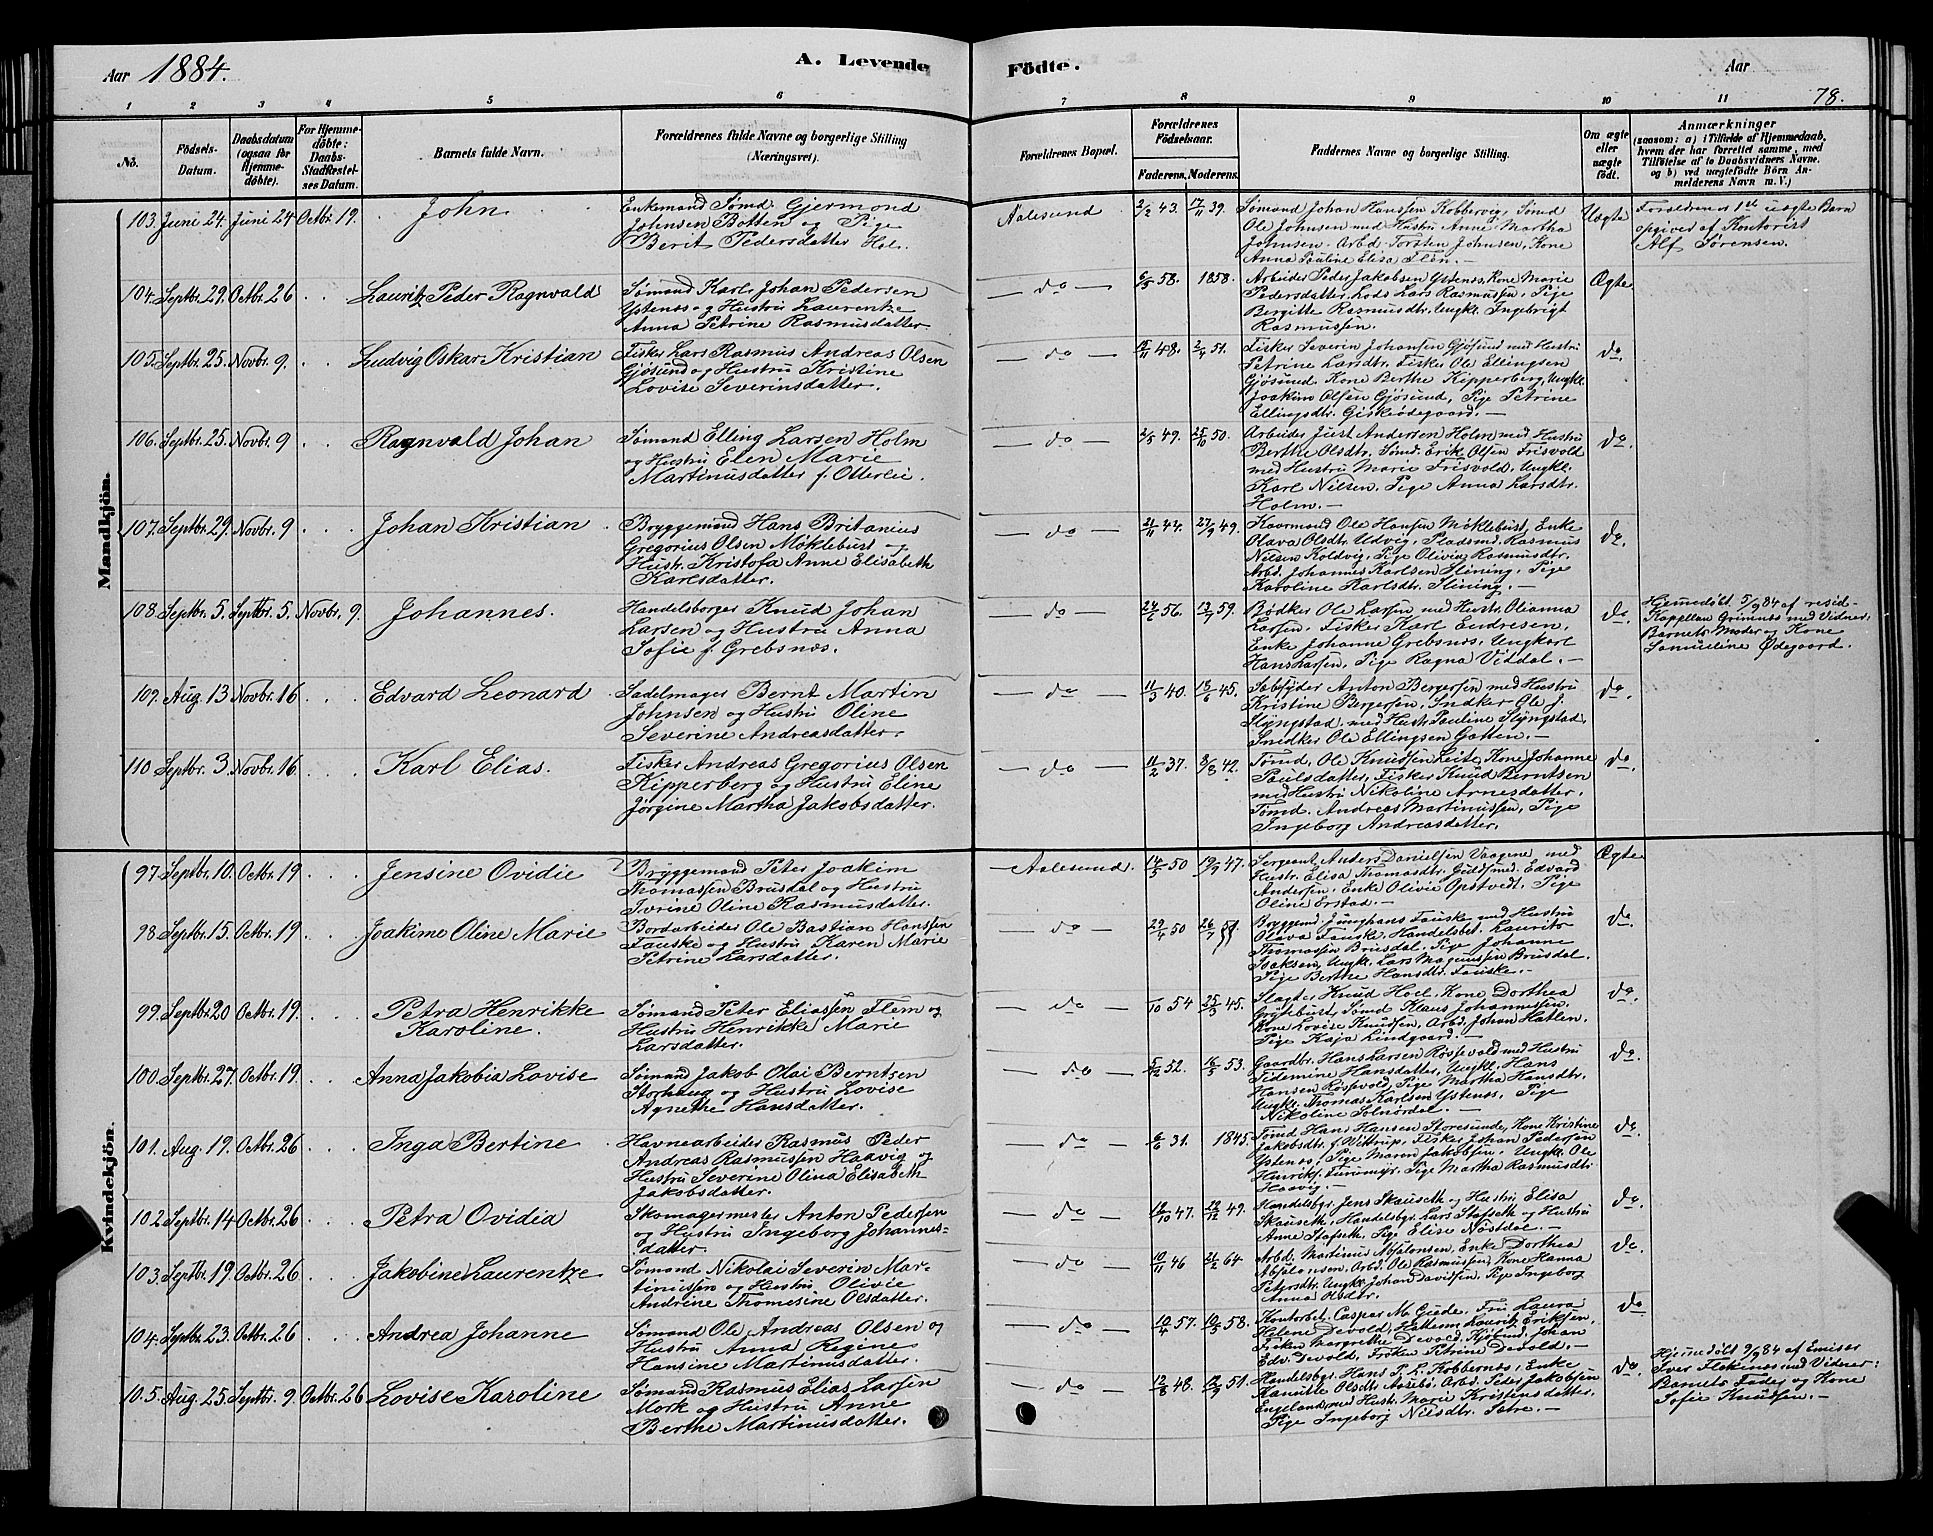 Aar 1884.
A. Levende Födte.
Aar
78.
1 2 3 4 5 6 7 8 9 10 11
No.
Födsels-Datum.
Daabsdatum (ogsaa for Hjemme-döbte).
For Hjemme-döbte: Daabs-Stadfæstel-ses Datum.
Barnets fulde Navn.
Forældrenes fulde Navne og borgerlige Stilling (Næringsvei).
Forældrenes Bopæl.
Forældrenes Födselsaar.
Faderens. Moderens.
Faddernes Navne og borgerlige Stilling.
Om ægte eller uægte födt.
Anmærkninger
(saasom: a) i Tilfælde af Hjemmedaab,
hvem der har forrettet samme, med
Tilföielse af to Daabsvidners Navne.
og b) ved uægtefödte Börn An-
melderens Navn m. V.)
Mandkjön.
103. Juni 24. Juni 24 Octbr. 19. John
Enkemand Sømd. Gjermond
Johnsen Botten og Pige
Berit Pedersdatter Hol.
Aalesund 2/2 43. 17/11 39.
Sømand Johan Hanssen Kobbervig, Sømd
Ole Johnsen med Hustru Anne Martha
Johnsen. Arbd. Torsten Johnsen, Kone
Anna Pauline Elisa Flem.
Uægte
Forældrenes 1ste uægte Barn
opgivet af Kontorist
Alf Sørensen.
104. Septbr. 29. Octbr. 26 Lauritz Peder Ragnvald
Sømand Karl Johan Pedersen
Ystenes og Hustru Laurentze
Anna Petrine Rasmusdatter
do 6/5 58. 1858.
Arbeider Peder Jakobsen Ystenes, Kone Marie
Pedersdatter, Lods Lars Rasmussen, Pige
Bergitte Rasmusdtr. Ungkl. Ingebrigt
Rasmussen.
Ægte
105. Septbr. 25. Novbr. 9. Ludvig Oskar Kristian
Fisker Lars Rasmus Andreas Olsen
Gjøsund og Hustru Kristine
Lovise Severinsdatter.
do 48. 51.
Fisker Severin Johansen Gjøsund med Hustru
Petrine Larsdtr. Fisker Ole Ellingsen
Gjøsund. Kone Berthe Kipperberg, Ungkl.
Joakim Olsen Gjøsund, Pige Petrine
Ellingsdtr. Giskeødegaard.
do.
106. Septbr. 25. Novbr. 9 Ragnvald Johan
Sømand Elling Larsen Holm
og Hustru Elen Marie
Martinusdatter f. Otterlei.
do 2/5 49. 25/10 50.
Arbeider Just Andersen Holm med Hustru
Berthe Olsdtr. Sømd. Erik Olsen Frisvold
med Hustru Marie Frisvold, Ungkl.
Karl Nilsen, Pige Anna Larsdtr.
Holm.
do.
107. Septbr. 29. Novbr. 9 Johan Kristian
Bryggemand Hans Britanius
Gregorius Olsen Møklebust og
Hustr. Kristofa Anne Elisabeth
Karlsdatter.
do 21/11 44. 27/9 49.
Kaarmand Ole Hansen Møklebust, Enke
Olava Olsdtr. Udvig, Pladsmd. Rasmus
Nilsen Koldvig, Pige Olivia Rasmusdtr.
Arbd. Johannes Karlsen Slining, Pige
Karoline Karlsdtr. Slining.
do.
108. Septbr. 5. Septbr. 5. Novbr. 9. Johannes.
Handelsborger Knud Johan
Larsen og Hustru Anna
Sofie f. Grebsnes.
do 56. 13/7 59.
Bødker Ole Larsen med Hustr. Olianna
Larsen. Fisker Karl Endresen,
Enke Johanne Grebsnes, Ungkarl
Hans Larsen, Pige Ragna Viddal.
do.
Hjemedøbt 5/9 84 af resid-
Kappellan Grimnes med Vidner:
Barnets Moder og Kone
Samueline Ødegaard.
109. Aug. 13 Novbr. 16 Edvard Leonard
Sadelmager Bernt Martin
Johnsen og Hustru Oline
Severine Andreasdatter.
do 11/3 40. 45.
Sæbesyder Anton Bergersen med Hustru
Kristine Bergersen, Snedker Ole J.
Slyngstad med Hustr. Pauline Slyngstad,
Snedker Ole Ellingsen Gotten.
do.
110 Septbr. 3. Novbr. 16 Karl Elias.
Fisker Andreas Gregorius Olsen
Kipperberg og Hustru Eline
Jørgine Martha Jakobsdatter.
do 11/2 37. 42.
Tømd. Ole Knudsen Leite, Kone Johanne
Paulsdatter, Fisker Knud Berntsen
med Hustru Nikoline Arnesdatter,
Tømd. Andreas Martinussen, Pige
Ingeborg Andreasdatter.
do.
Kvindekjön.
97. Septbr. 10. Octbr. 19 Jensine Ovidie
Bryggemand Peter Joakim
Thomassen Brusdal og Hustru
Ivrine Oline Rasmusdatter.
Aalesund. 14/5 50 19/9 47.
Sergeant Anders Danielsen Vaagene med
Hustr. Elisa Thomasdtr. Guldsmed. Edvard
Andersen, Enke Olivie Opstvedt, Pige
Oline Erstad.
Ægte
98 Septbr. 15. Octbr. 19 Joakime Oline Marie
Bordarbeider Ole Bastian Hansen
Fauske og Hustru Karen Marie
Petrine Larsdatter.
do 50 26/7
Bryggemd. Junghans Fauske med Hustru
Olava Fauske, Handelsbet. Laurits
Thomassen Brusdal, Pige Johanne
Isaksen, Ungkl. Lars Magnussen Brusdal,
Pige Berthe Hansdtr. Fauske.
do.
99. Septbr. 20 Octbr. 19. Petra Henrikke
Karoline.
Sømand Peter Eliassen Flem og
Hustru Henrikke Marie
Larsdatter.
do 54 25/5 45.
Slagter Knud Hoel, Kone Dorthea
Grytebust, Sømd Klaus Johannessen,
Kone Lovise Knudsen, Arbd. Johan Hatlen,
Pige Kaja Lindgaard.
do
100. Septbr. 27. Octbr. 19 Anna Jakobia Lovise
Sømand Jakob Olai Berntsen
Storhaug og Hustru Lovise
Agnethe Hansdatter.
do 5/12 52. 16/5 53.
Gaardbr. Hans Larsen Røssevold med Hustru
Hansdatter, Ungkl. Hans
Hansen Røsevold, Pige Martha Hansdtr.
Ungkl. Thomas Karlsen Ystenes, Pige
Nikoline Solnørdal.
do
101. Aug. 19. Octbr. 26 Inga Bertine
Havnearbeider Rasmus Peder
Andreas Rasmussen Haavig og
Hustru Severine Olina Elisabeth
Jakobsdatter.
do 6/6 31. 1845.
Tømd. Hans Hansen Storesunde, Kone Kristine
Jakobsdtr. f. Wittrup, Fisker Johan Pedersen
Ystenes, Pige Maren Jakobsen, Ungkl. Ole
Henriks. Furumyr. Pige Martha Rasmusdtr.
Haavig.
do.
102 Septbr. 14 Octbr. 26 Petra Ovidia
Skomagermester Anton Pedersen
og Hustru Ingeborg Johannes-
datter.
do 47. 49.
Handelsbgr. Jens Skauseth og Hustru Elisa
Skauseth, Handelsbgr. Lars Stafseth og Hustru
Anne Stafseth, Pige Elise Nøstdal.
do.
103. Septbr. 19. Octbr. 26. Jakobine Laurentze
Sømand Nikolai Severin Mar-
tinussen og Hustru Olivie
Andrine Thomesine Olsdatter.
do 10/11 46 64.
Arbd. Martinus Absalonsen, Enke Dorthea
Absalonsen, Arbd. Ole Rasmussen, Kone Hanna
Petersdtr. Ungkl. Johan Davidsen, Pige Ingeborg
Anna Olsdtr.
do.
104. Septbr. 23. Octbr. 26 Andrea Johanne
Sømand Ole Andreas Olsen og
Hustru Anna Regine
Hansine Martinusdatter.
do 57. 58.
Kontorbet. Casper M. Giede. Fru Laura
Helene Devold, Hattem. Lauritz Eriksen,
Frøken Margrethe Devold. Kjøbmd. Johan
Edv. Devold, Frøken Petrine Devold.
do
105. Aug. 25. Septbr. 9. Octbr. 26 Lovise Karoline
Sømand Rasmus Elias Larsen
Mork og Hustru Anne
Berthe Martinusdatter.
do 48. 51.
Handelsbgr. Hans P. L. Kobbernes, Enke
Olsdtr. Aasebø. Arbd. Peder Jakobsen
Engeland med Hustr. Marie Kristensdatter,
Pige Ingeborg Nilsdtr. Sætre.
do.
Hjemedøbt 9/9 84 af Emisær
Iver Flekenes med Vidner:
Barnets Fader og Kone
Sofie Knudsen.